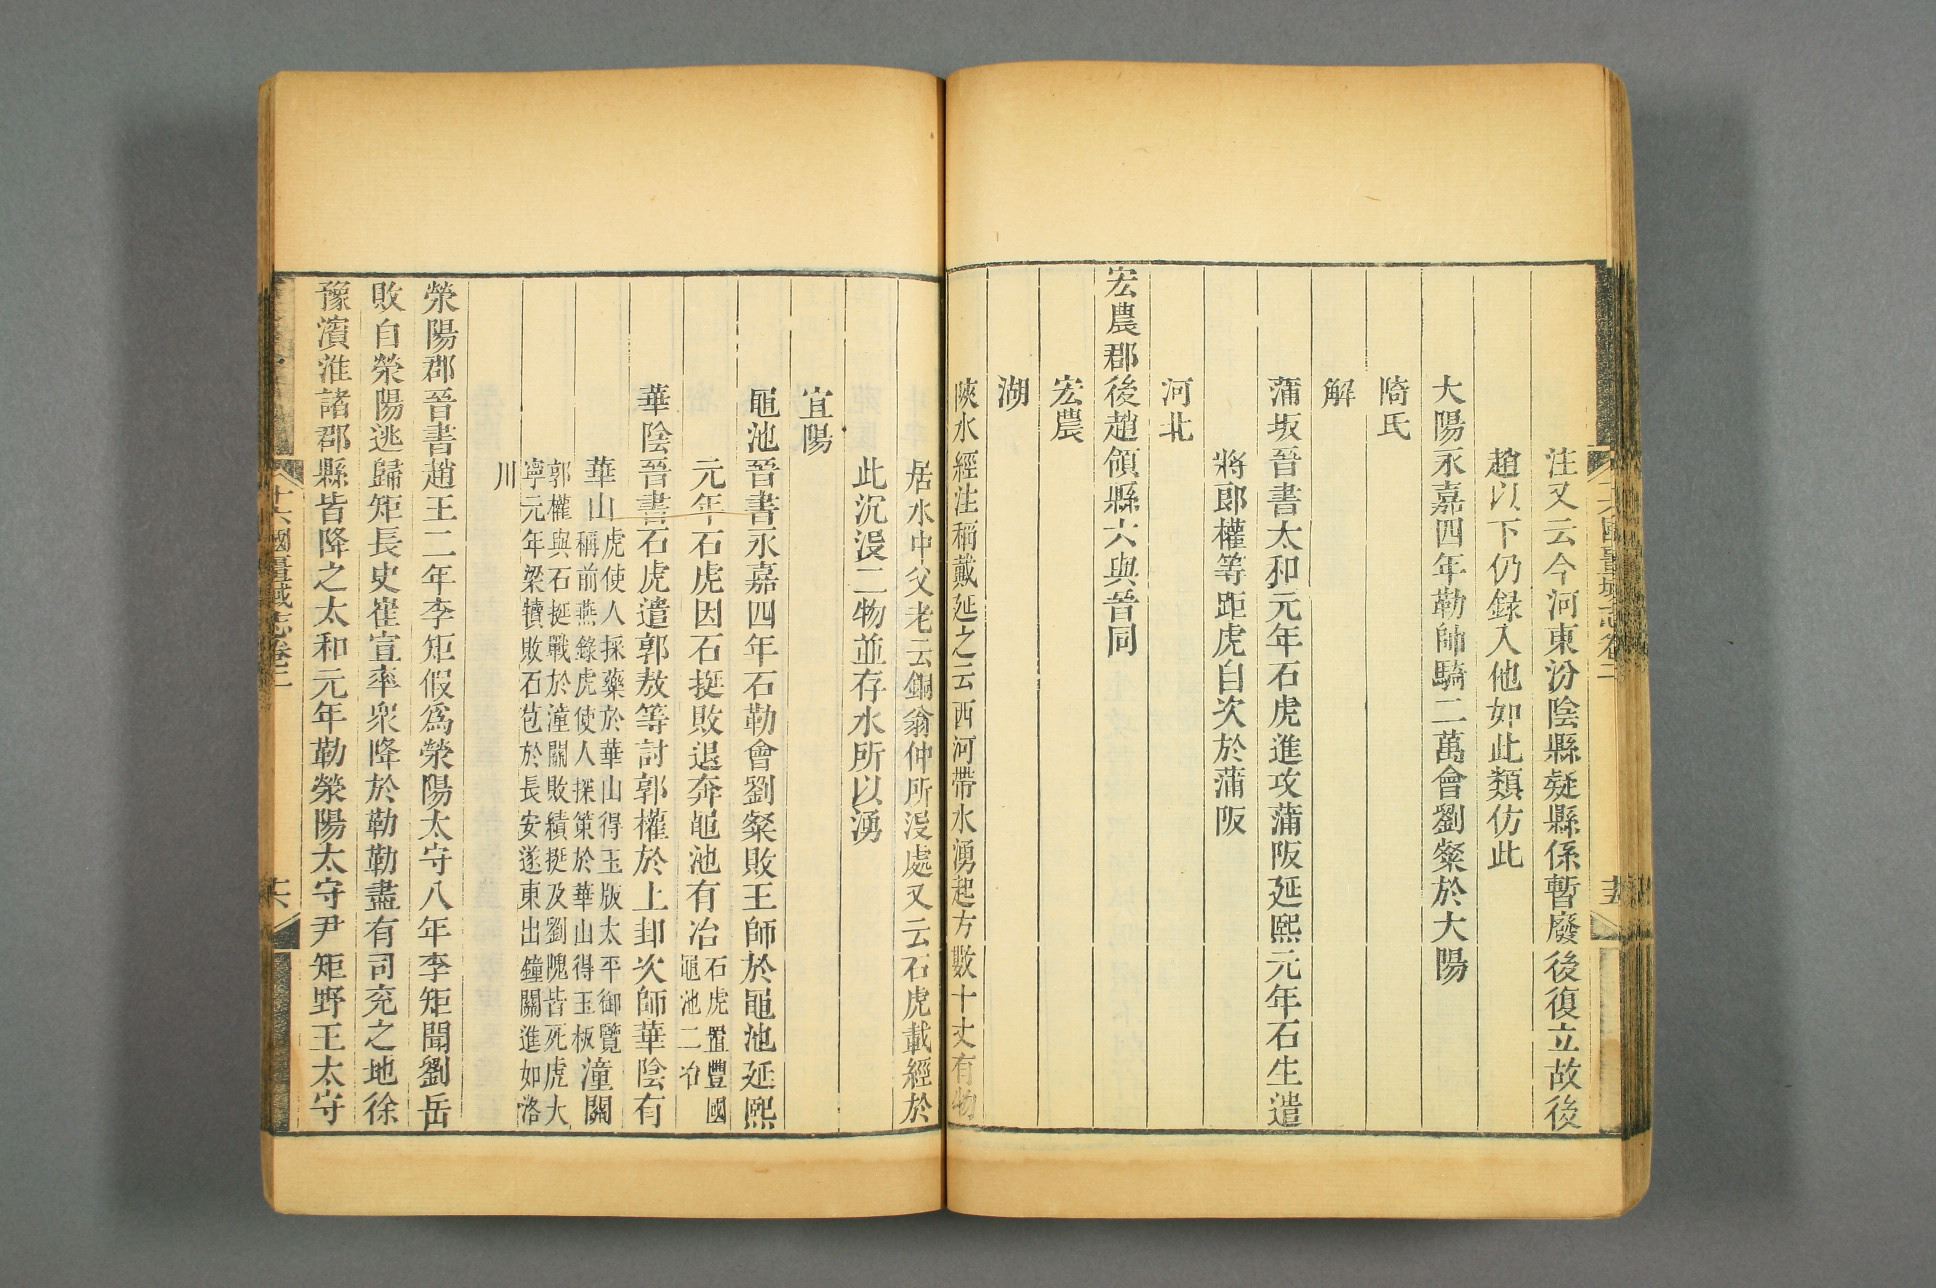 注又云今河東汾陰縣疑縣係暫廢後復立故後
趙以下仍録入他如此類仿此
大陽永嘉四年勒師騎二萬會劉粲於大陽
陭氏
解
蒲坂晉書太和元年石虎進攻蒲阪延熙元年石生遣
將郎權等距虎自次於蒲阪
河北
宏農郡後趙領縣六與晉同
宏農
湖
陝水經注稱戴延之云西河帶水湧起方數十丈有物
居水中父老云銅翁仲所没處又云石虎載經於
此沉没二物並存水所以湧
宜陽
黽池晉書永嘉四年石勒會劉粲敗王師於黽池延熙
元年石虎因石挺敗退奔黽池有冶石虎置豐國
黽池二冶
華陰晉書石虎遣郭敖等討郭權於上邽次師華陰有
華山虎使人採藥於華山得玉版太平御覽
稱前燕錄虎使人探策於華山得玉板潼關
郭權與石挺戰於潼關敗績挺及劉隗皆死虎大
寧元年梁犢敗石苞於長安遂東出鐘關進如洛
川
滎陽郡晉書趙王二年李矩假爲滎陽太守八年李矩聞劉岳
敗自滎陽逃歸矩長史崔宣率衆降於勒勒盡有司兗之地徐
豫濱淮諸郡縣皆降之太和元年勒滎陽太守尹矩野王太守
十六國畺域志卷二
十六